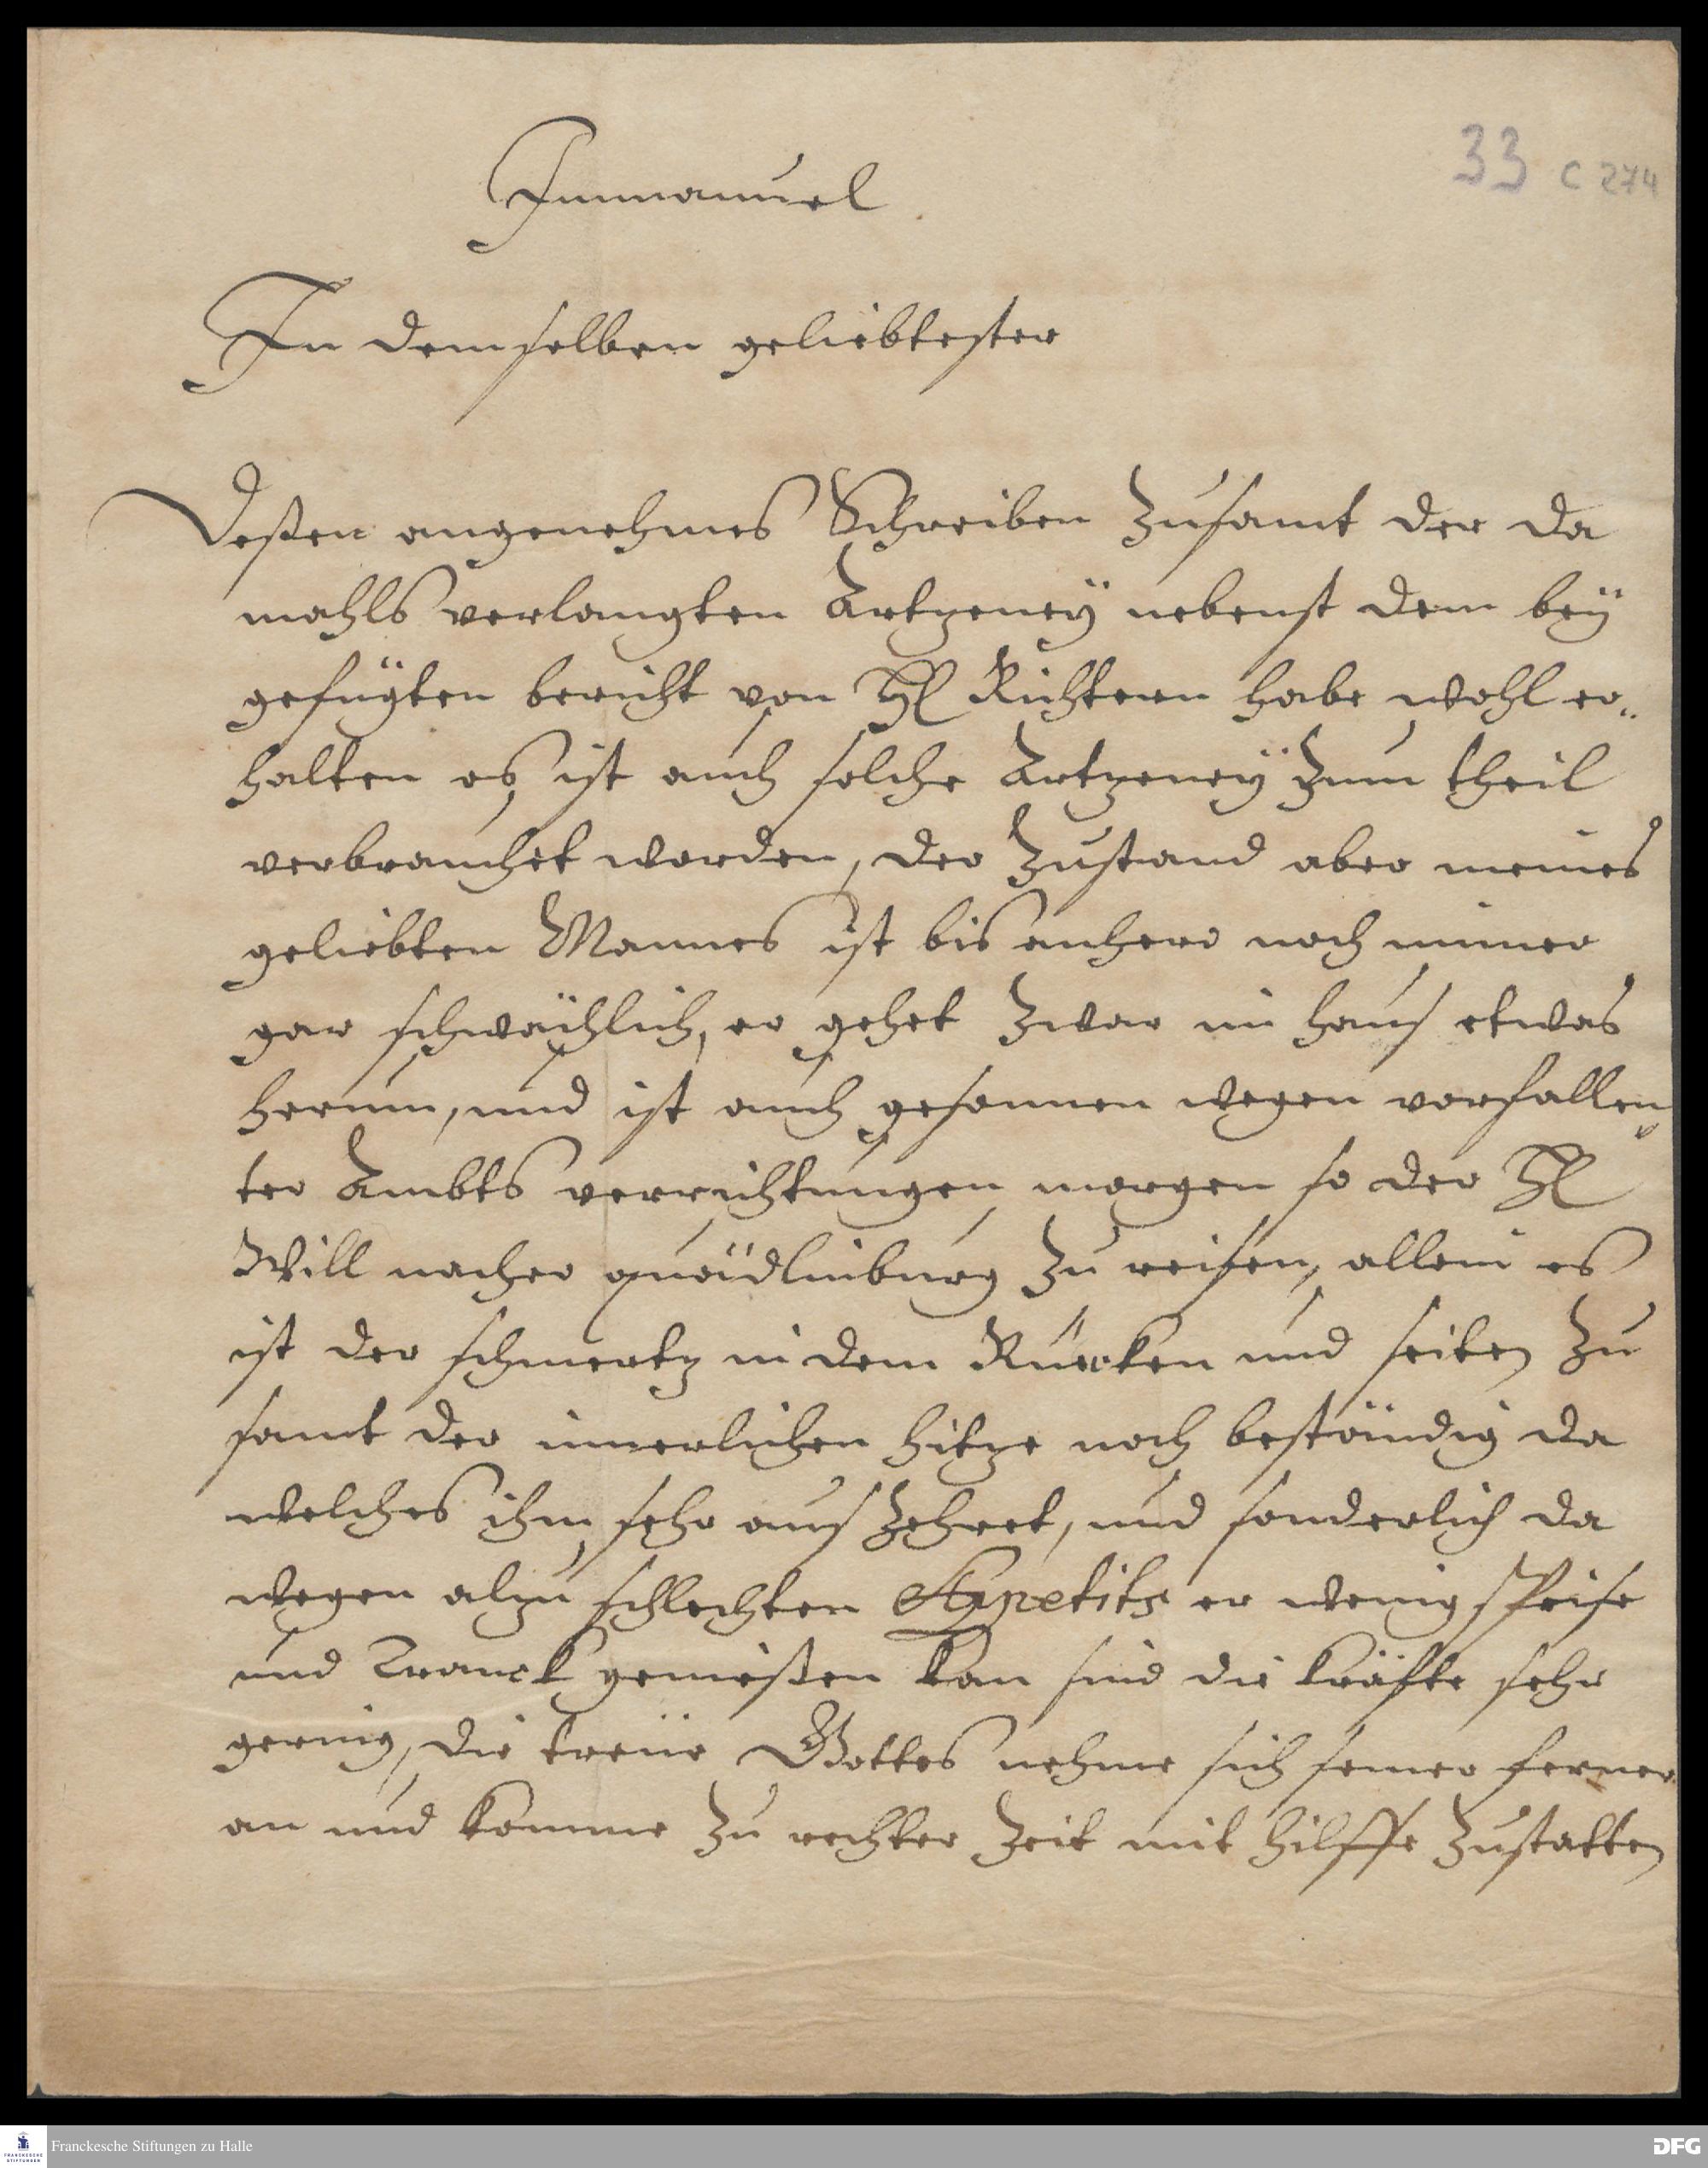 33 C 274
Immanuel
In demselben geliebtester
Deßen angenehmes Schreiben zusamt der da
mahls verlangten Artzeney nebenst dem bey
gefügten bericht von H. Richtern habe wohl er„
halten es ist auch solche Artzeney zum theil
verbrauchet worden, der Zustand aber meines
geliebten Mannes ist bis anhero noch immer
gar schwächlich, er gehet zwar im hauß etwas
herum, und ist auch gesonnen wegen vorfallen„
ter Ambts verrichtungen morgen so der H.
Will nacher quedlinburg zu reisen, allein es
ist der schmertz in dem Rücken und seiten zu
samt der innerlichen hitze noch beständig da
welches ihm sehr aus Zehret, und sonderlich da
wegen alzu schlechten Appetits er wenig speise
und Tranck genießen kan sind die kräfte sehr
gering, die treüe Gottes nehme sich seiner ferner
an und komme zu rechter Zeit mit hilffe zustatten
Franckesche Stiftungen zu Halle
DFG